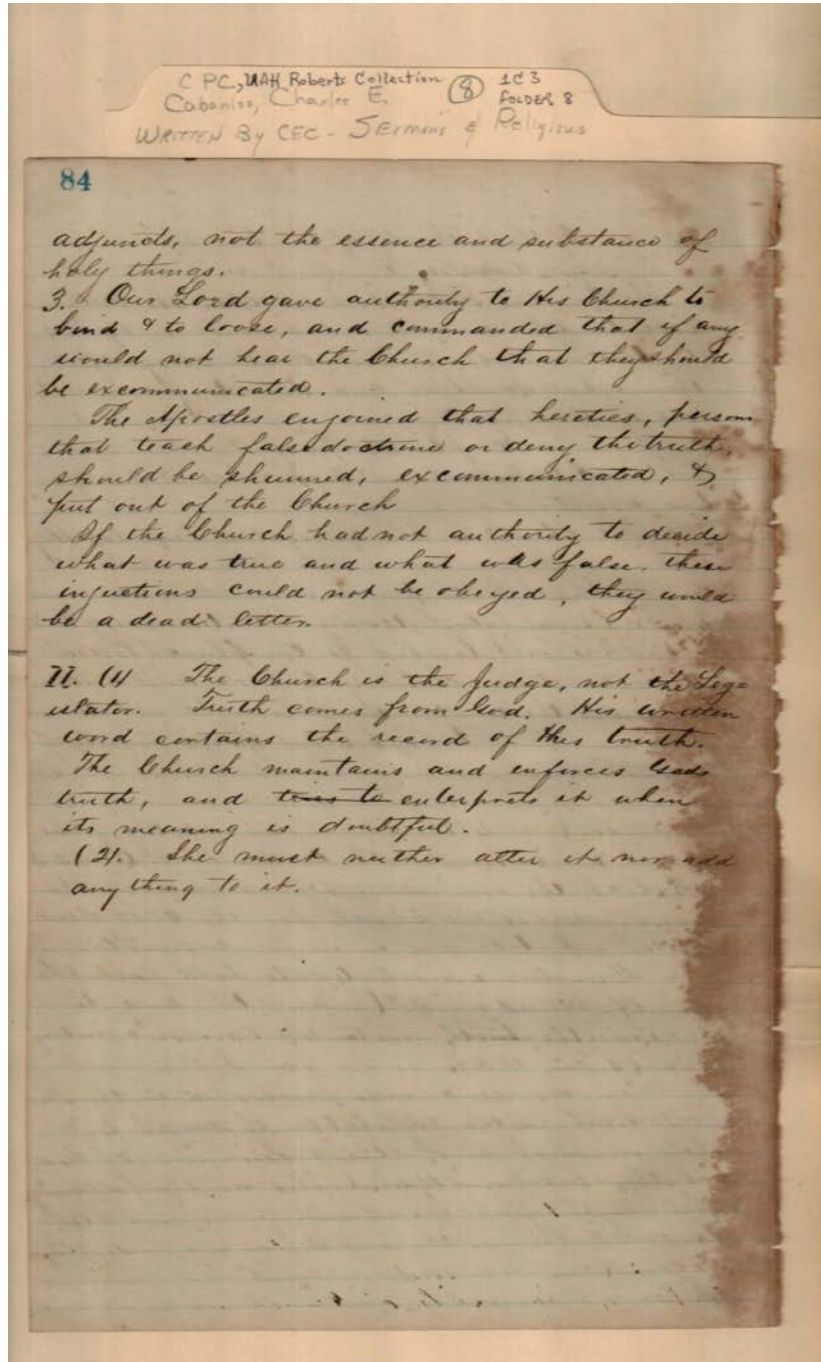 C PC, UAH Roberts Collection 8 1C3
Cabaniss, Charles E. FOLDER 8
WRITTEN By CEC - SErmons & Religious
84
adjuncts, not the essence and substance of
holy things.
3. Our Lord gave authority to His Church to
bind & to loose, and commanded that if any
would not hear the Church that they should
be excommunicated.
The Apostles enjoined that heretics, persons
that teach false doctrine or deny the truth,
should be shunned, excommunicated, &
put out of the Church
If the Church had not authority to decide
what was true and what was false, these
injuctions could not be obeyed, they would
be a dead letter.
II. (1) The Church is the Judge, not the Leg=
islator. Truth comes from God. His written
word contains the record of this truth.
The Church maintains and enforces Gods
truth, and tries to enterprets it when
its meaning is doubtful.
(2). She must neither alter it nor add
any thing to it.